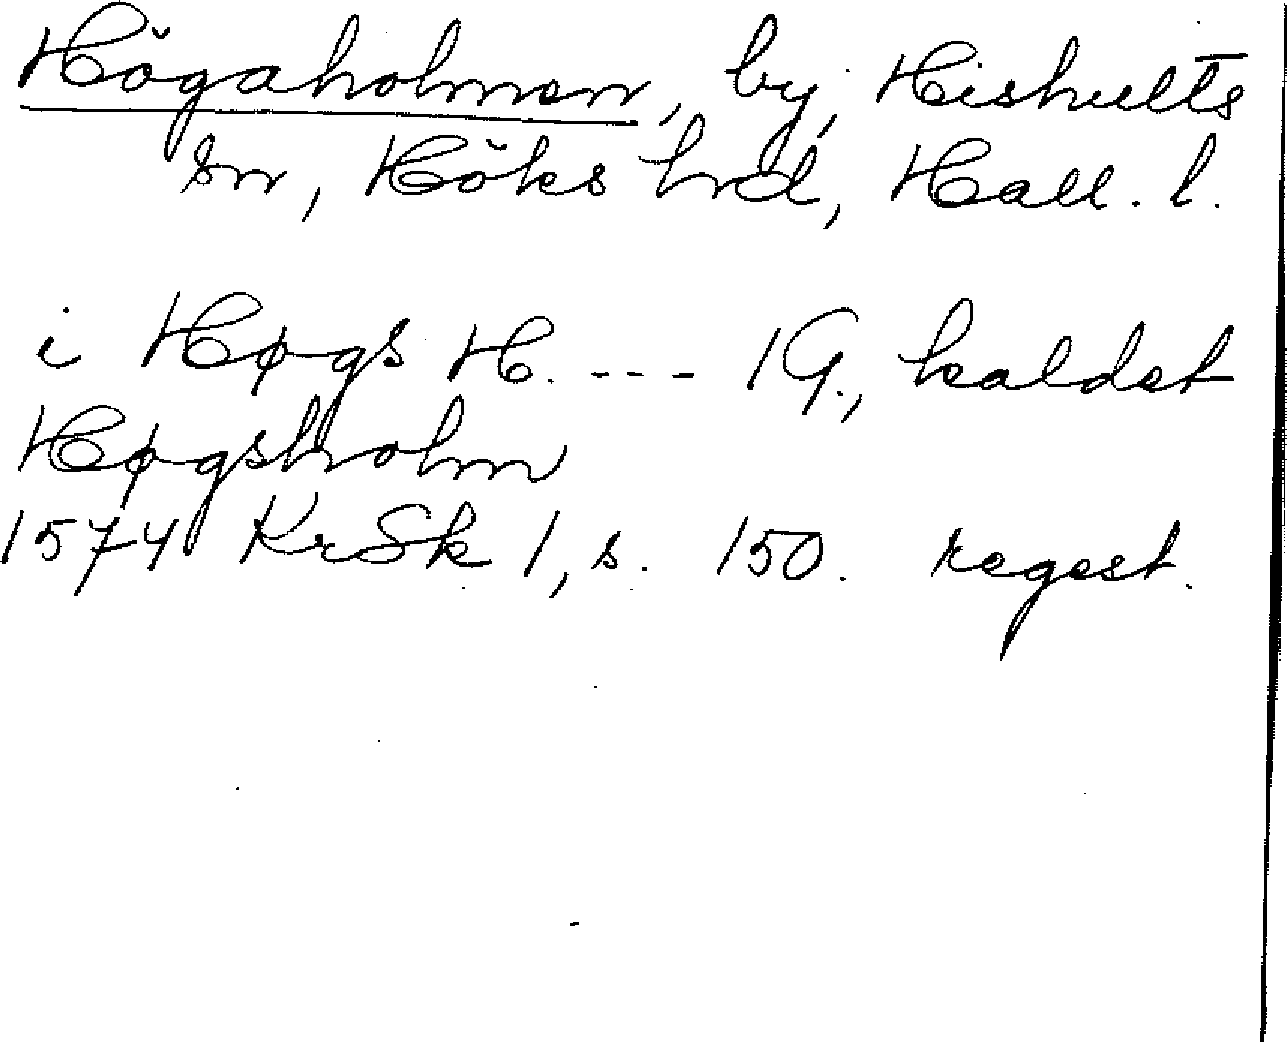 Högaholmen, by, Hishults
sn, Höks hrd, Hall. l.
i Høgs H. --- 1 G., kaldet
Høgsholm
1574 KrSk 1, s. 150. regest.